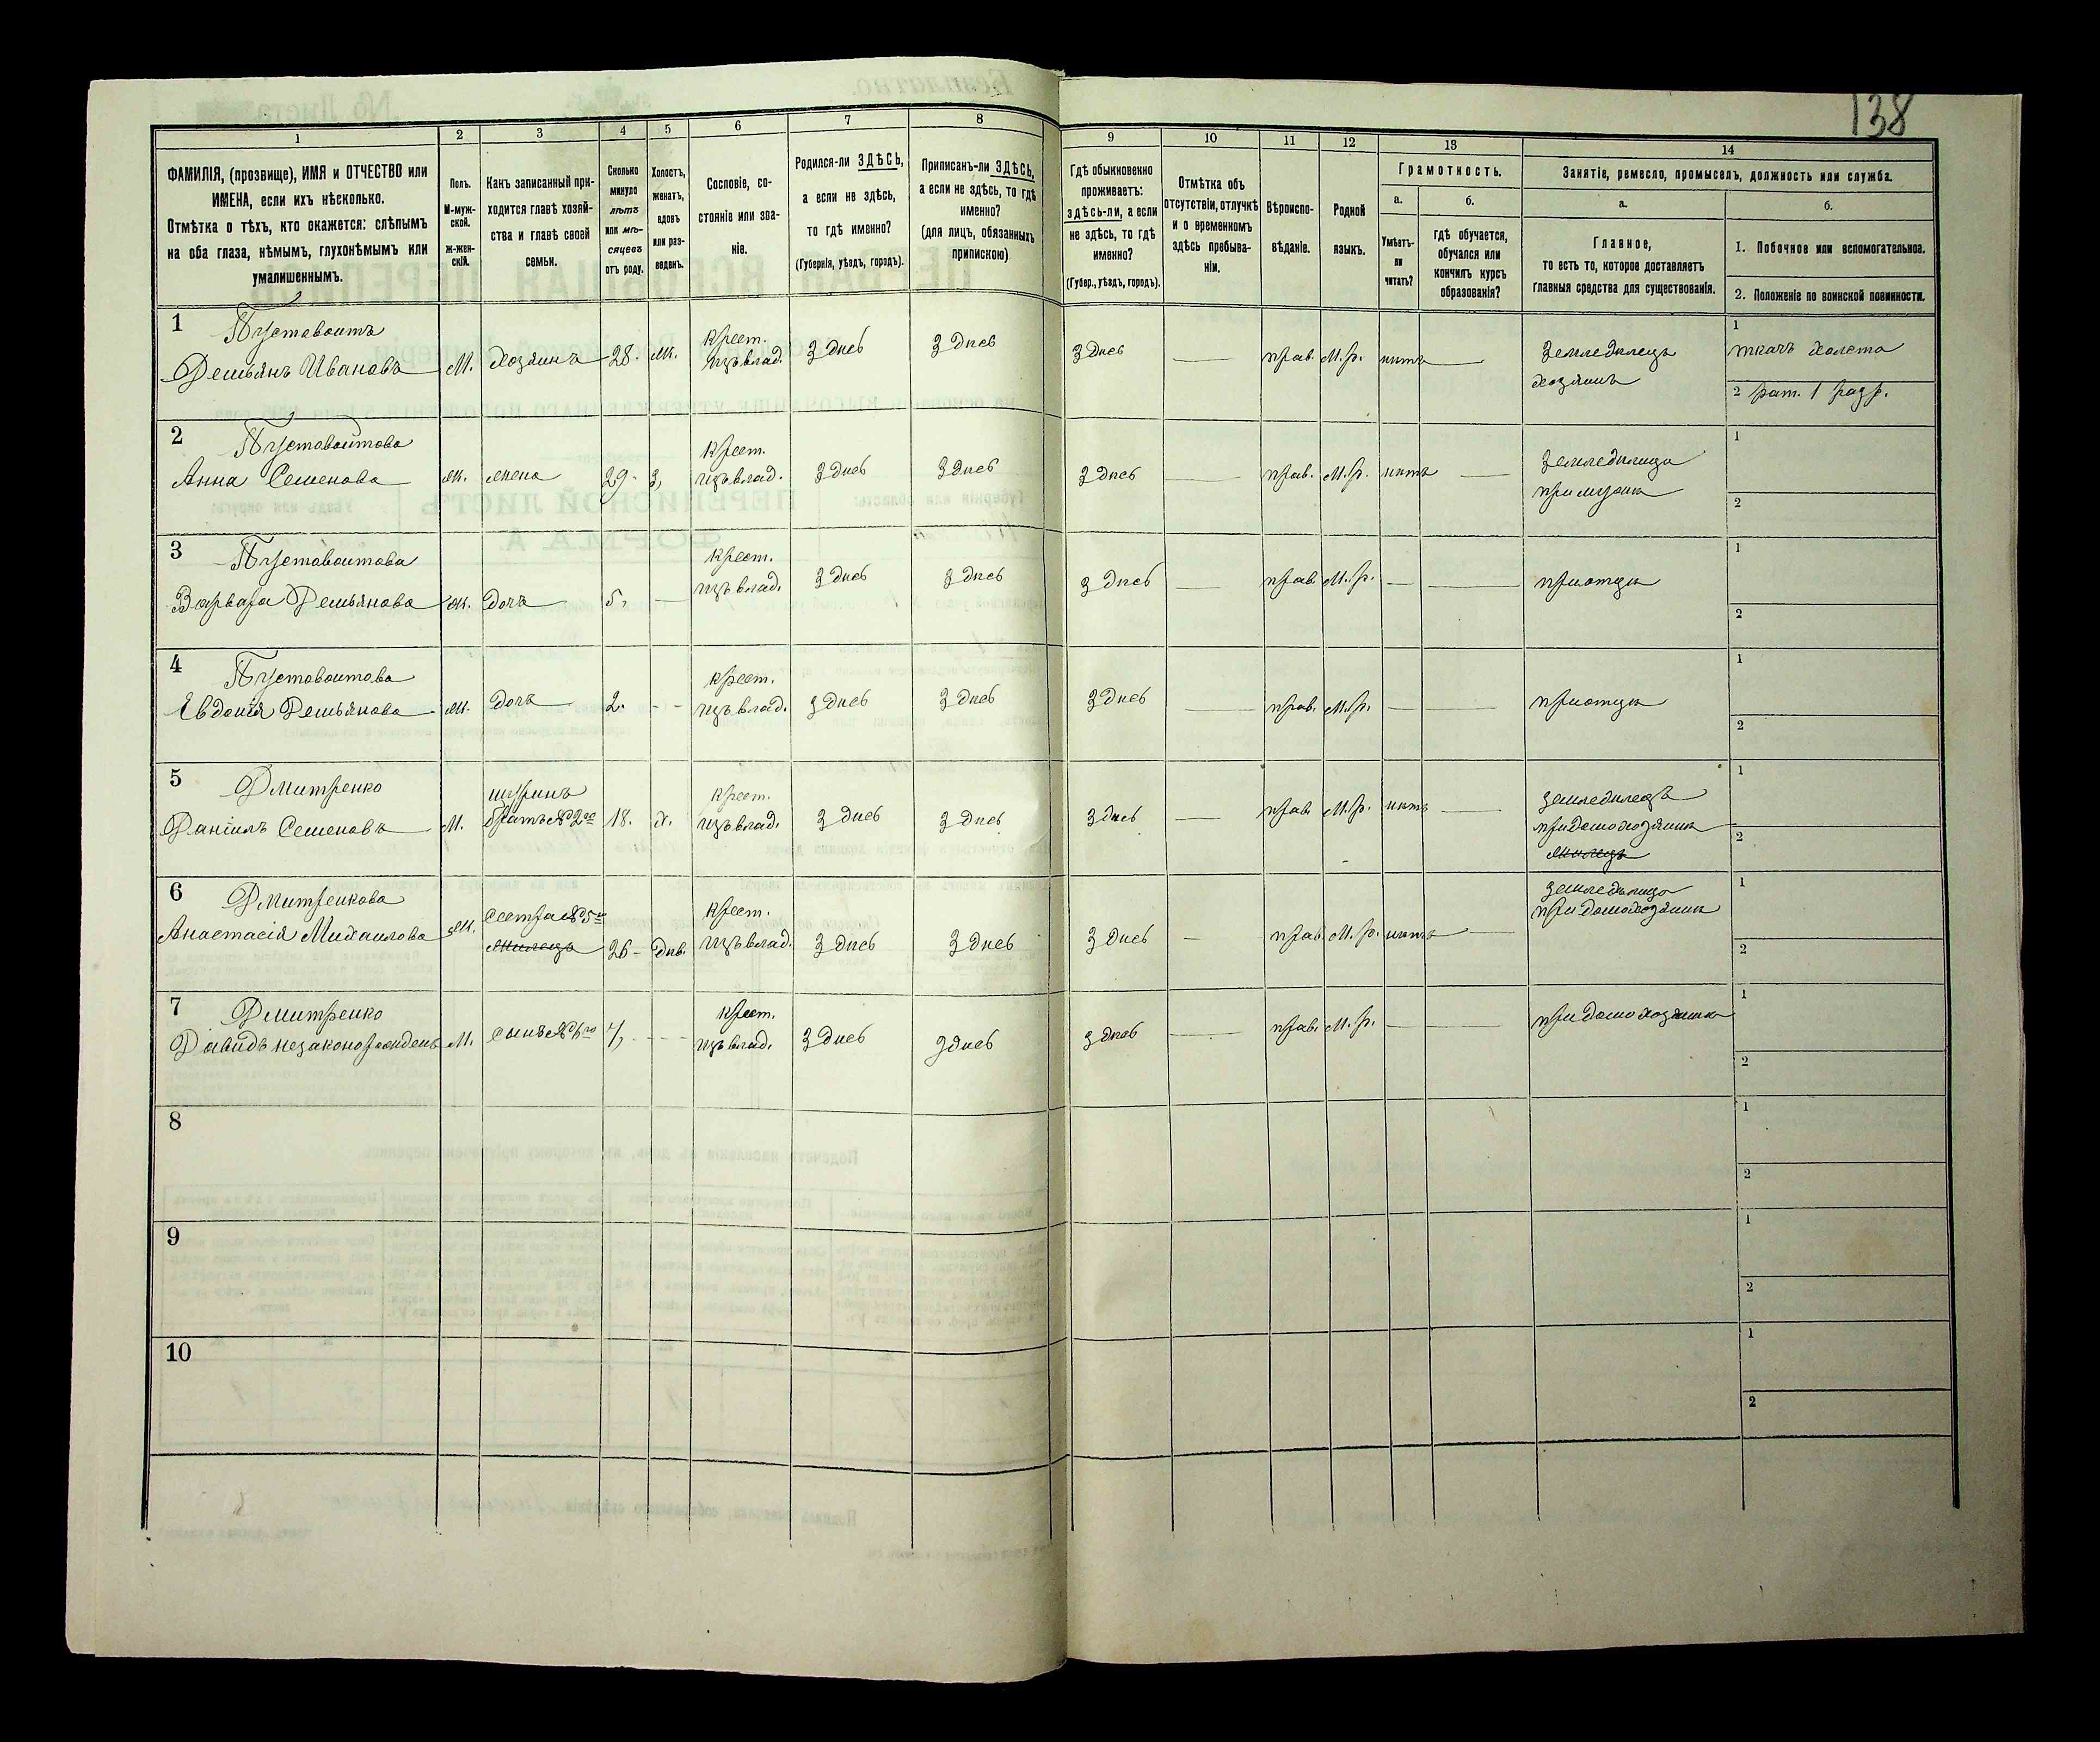 138
1
2
3
4
5
6
7
8
9
10
11
12
13
14
ФАМИЛІЯ, (прозвище), ИМЯ и ОТЧЕСТВО или
ИМЕНА, если ихъ нѣсколько.
Отмѣтка о тѣхъ, кто окажется: слѣпымъ
на оба глаза, нѣмымъ, глухонѣмымъ или
умалишеннымъ.
Полъ.
М-муж-
ской.
ж-жен-
скій.
Какъ записанный при-
ходится главѣ хозяй-
ства и главѣ своей
семьи.
Сколько
минуло
лѣтъ
или мѣ-
сяцевъ
отъ роду.
Холостъ,
женатъ,
вдовъ
или раз-
веденъ.
Сословіе, со-
стояніе или зва-
ніе.
Родился-ли ЗДѢСЬ,
а если не здѣсь,
то гдѣ именно?
(Губернія, уѣздъ, городъ).
Приписанъ-ли ЗДѢСЬ,
а если не здѣсь, то гдѣ
именно?
(для лицъ, обязанныхъ
припискою)
Гдѣ обыкновенно
проживаетъ:
здѣсь-ли, а если
не здѣсь, то гдѣ
именно?
(Губер., уѣздъ, городъ).
Отмѣтка объ
отсутствіи, отлучкѣ
и о временномъ
здѣсь пребыва-
ніи.
Вѣроиспо-
вѣданіе.
Родной
языкъ.
Грамотность.
а.
Умѣетъ-
ли
читать?
б.
гдѣ обучается,
обучался или
кончилъ курсъ
образованія?
Занятіе, ремесло, промыселъ, должность или служба.
а.
Главное,
то есть то, которое доставляетъ
главныя средства для существованія.
б.
1. Побочное или вспомогательное.
2. Положеніе по воинской повинности.
1 Пустовоитъ
Демьянъ Ивановъ М. хозяинъ 28. ж. крест. изъ влад. Здесь Здесь Здесь — прав. М.р. нитъ — Земледелецъ хозяинъ
1 ткачъ холста
2 рат. 1 разр.
2 Пустовоитова
Анна Семенова ж. жена 29. з, крест. изъ влад. Здесь Здесь Здесь — прав. М.р. нитъ — Земледелица при мужи
1
2
3 Пустовоитова
Варвара Демьянова ж. дочь 5. — крест. изъ влад. Здесь Здесь Здесь — прав. М.р. — — при отци
1
2
4 Пустовоитова
Евдокія Демьянова ж. дочь 2. - - крест. изъ влад. Здесь Здесь Здесь — прав. М.р. — — при отци
1
2
5 Дмитренко
Даніилъ Семеновъ М. шуринъ братъ №2го 18. х. крест. изъ влад. Здесь Здесь Здесь — прав М.р. нитъ — земледилецъ при домохозяини жилецъ
1
2
6 Дмитренкова
Анастасія Михаилова ж. сестра №5го жилецъ 26 - дѣв. крест. изъ влад. Здесь Здесь Здесь — прав. М.р. нитъ — земледилица при домохозяини
1
2
7 Дмитренко
Давидъ незаконорожденъ М. сынъ №6го 4, - - - крест. изъ влад. Здесь Здесь Здесь — прав. М.р. — — при домохозяини
1
2
8
1
2
9
1
2
10
1
2